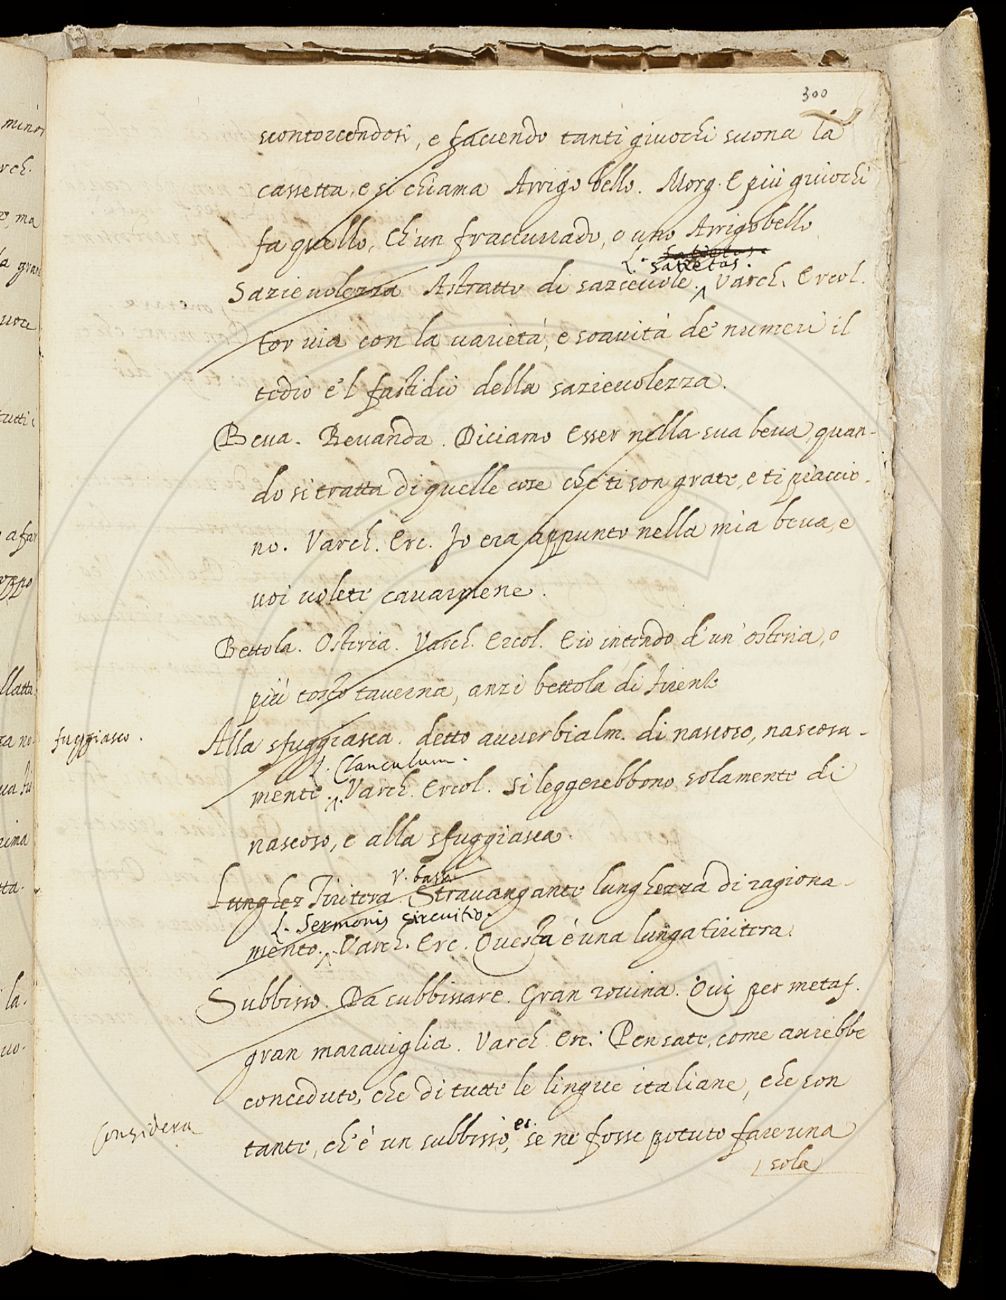 300
scontorcendosi, e facendo tanti giuochi suona la
cassetta, e si chiama Arrigo bello. Morg. E più giuochi
fa quello, ch'un fraccurrado, o uno Arrigobello
L. satietas.
Sazievolezza Astratto di sazievole. Varch. Ercol.
tor via con la varietà, e soavità de' numeri il
tedio e 'l fastidio della sazievolezza.
Beva. Bevanda. Diciamo Esser nella sua beva, quan-
do si tratta di quelle cose che ti son grate, e ti piaccio-
no. Varch. Erc. Io era appunto nella mia beva, e
voi volete cavarmene.
Bettola. Osteria. Varch. Ercol. E io intendo d'un'osteria, o
più tosto taverna, anzi bettola di Firenze
fuggiasco.
Alla sfuggiasca. detto avverbialm. di nascoso, nascosa-
L. Clanculum.
mente. Varch. Ercol. Si leggerebbono solamente di
nascoso, e alla sfuggiasca.
V. basa
Lunghez Tiritera. Stravangante lunghezza di ragiona-
L. Sermonis circuitio.
mento. Varch. Erc. Questa è una lunga tiritera.
Subbisso. Da subbissare. Gran rovina. Qui per metaf.
gran maraviglia. Varch. Erc. Pensate, come avrebbe
conceduto, che di tutte le lingue italiane, che son
Considera
tante, ch'è un subbisso, se ne fosse potuto fare una
sola